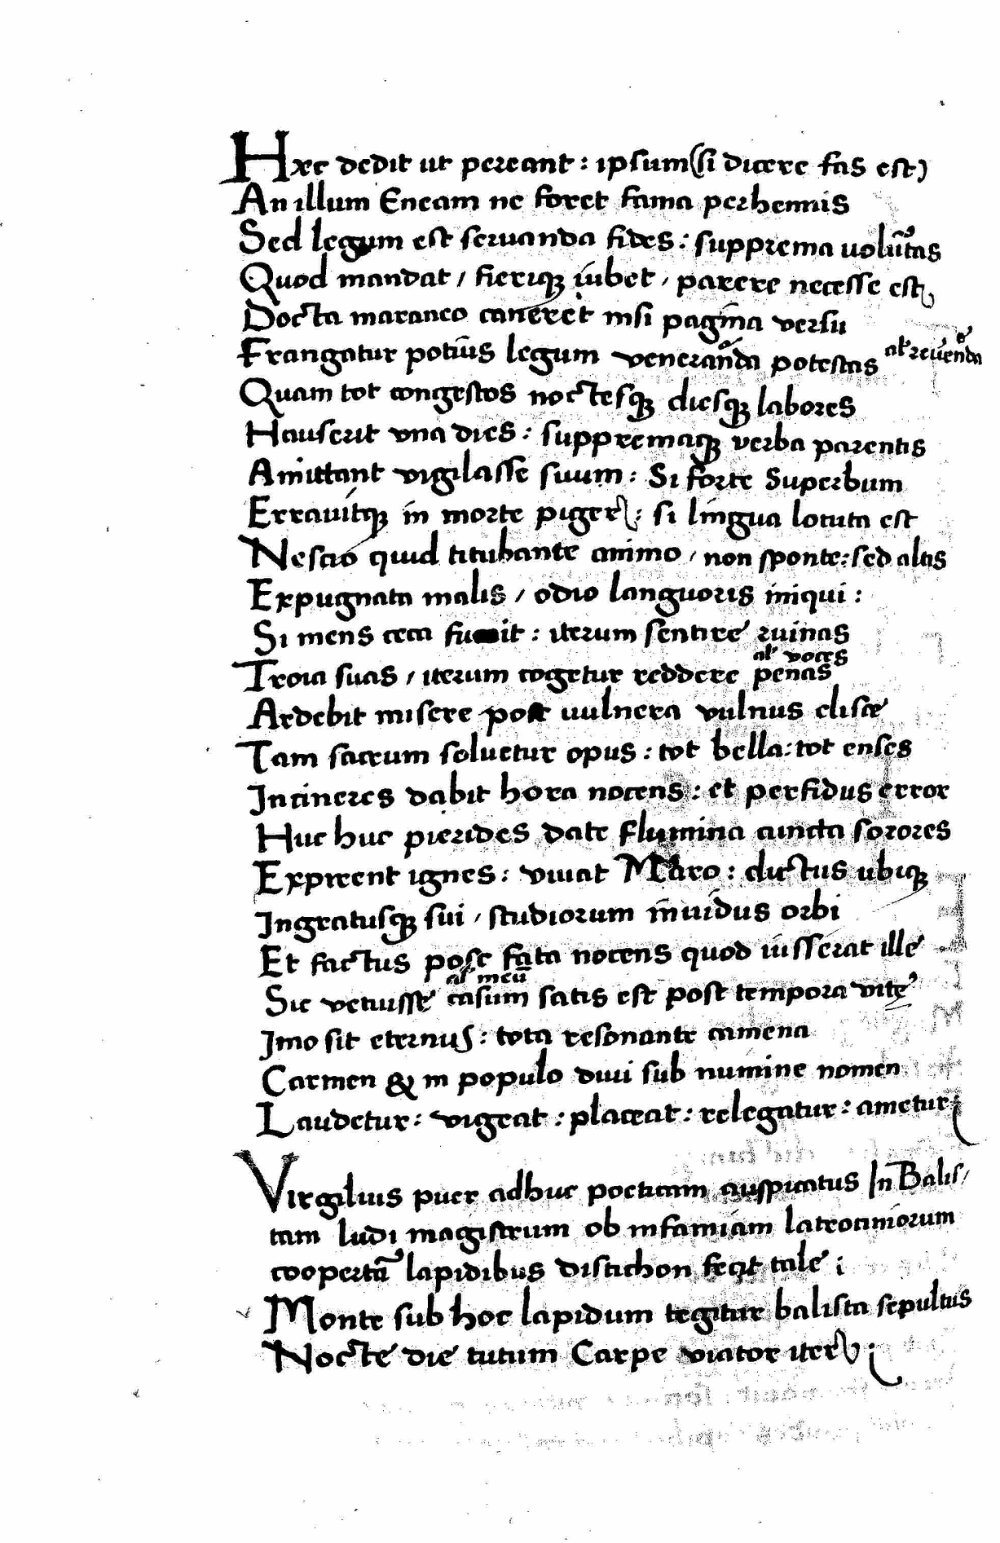 Hæc dedit ut pereant : ipsum (si dicere fas est)
An illum Eneam ne foret fama perhennis
Sed legum est seruanda fides : supprema uolūtas
Quod mandat / fieriqꝫ iubet / parere necesse est
Docta maroneo caneret nisi pagina versu
Frangatur potius legum veneranda potestas al' reuerēda
Quam tot congestos noctesqꝫ diesqꝫ labores
Hauserit vna dies : suppremaqꝫ verba parentis
Amittant vigilasse suum : Si forte Superbum
Errauitqꝫ in morte piger : si lingua locuta est
Nescio quid titubante animo / non sponte : sed altis
Expugnata malis / odio languoris iniqui :
Si mens ceca fuit : iterum sentire ruinas
Troia suas / iterum cogetur reddere penas
al' voces
Ardebit misere post uulnera vulnus elise
Tam sacrum soluetur opus : tot bella : tot enses
In cineres dabit hora nocens : et perfidus error
Huc huc pierides date flumina cuncta sorores
Expirent ignes : viuat Maro : ductus ubiqꝫ
Ingratusqꝫ sui / studiorum inuidus orbi
Et factus post fata nocens quod iusserat ille
Sic vetuisse casum satis est post tempora vite
al' meū
Imo sit eternus : tota resonante camena
Carmen & in populo diui sub numine nomen
Laudetur : vigeat : placeat : relegatur : ametur ;
Virgilius puer adhuc poeticam auspicatus In Balis/
tam ludi magistrum ob infamiam latrociniorum
coopertā lapidibus distichon fecit tale ;
Monte sub hoc lapidum tegitur balista sepultus
Nocte die tutum Carpe viator iter ;